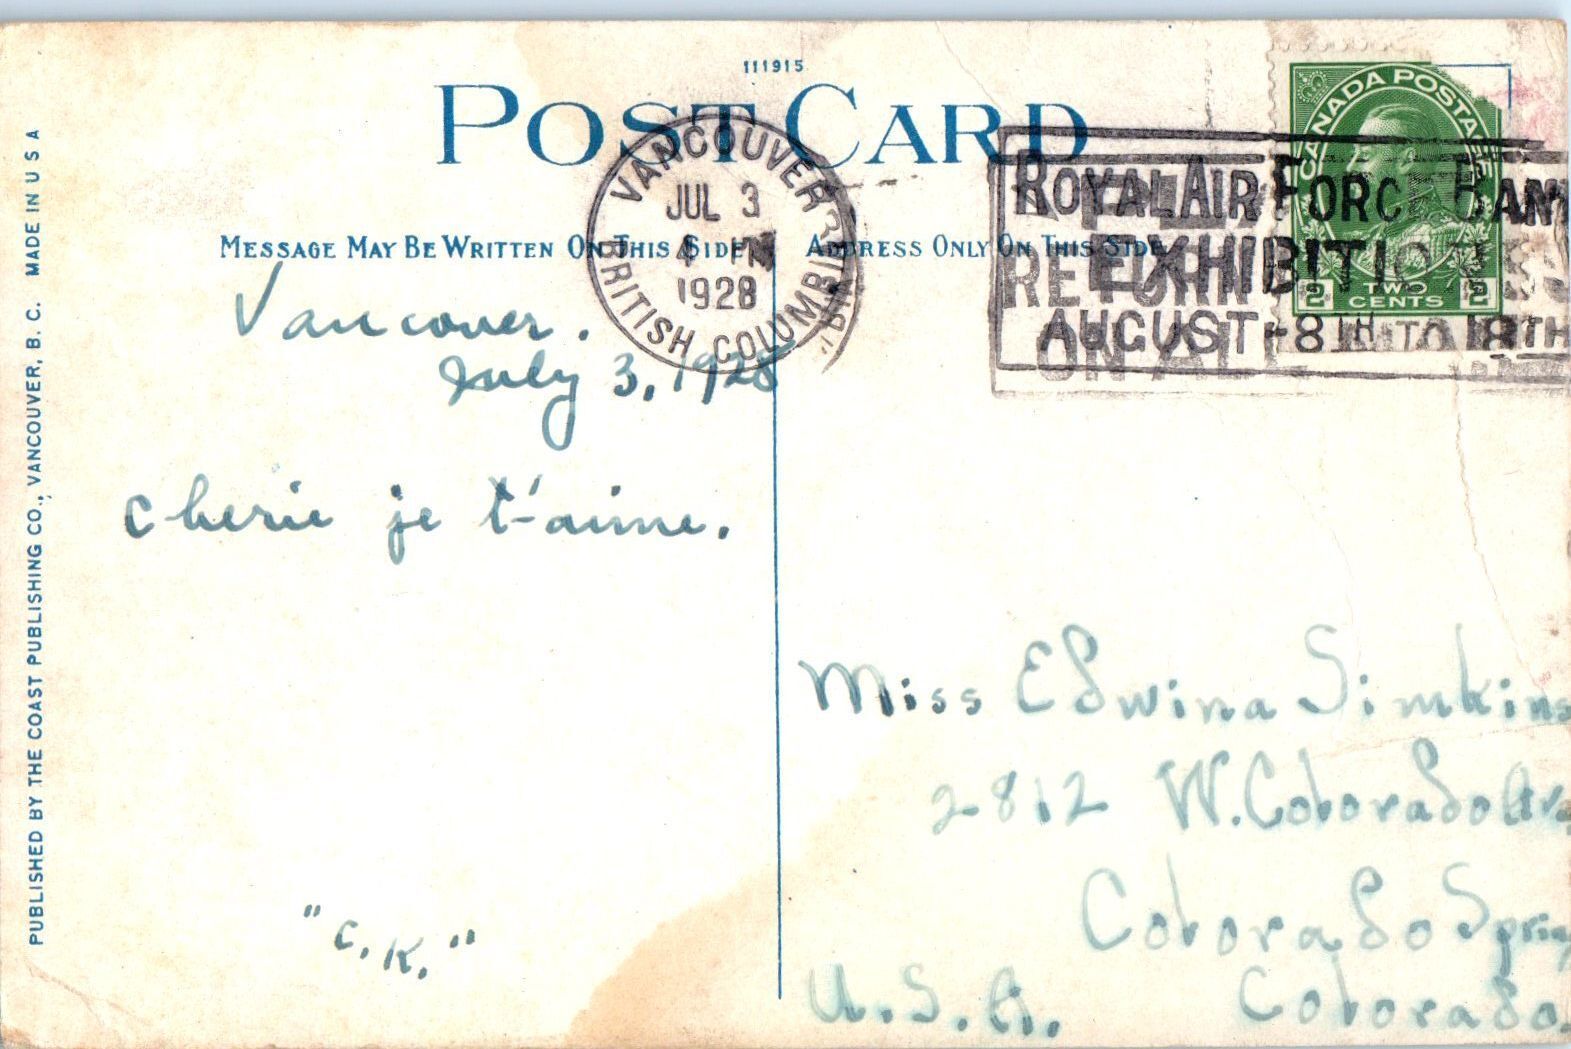 111915
POST CARD
VANCOUVER
JUL 3
4 PM
1928
BRITISH COLUMBIA
ROYAL AIR FORCE BAN
EXHIBITION
AUGUST 8TH TO 18TH
RETURN
ON ALL
CANADA POSTAGE
2 TWO CENTS 2
MESSAGE MAY BE WRITTEN ON THIS SIDE
ADDRESS ONLY ON THIS SIDE
Vancouver.
July 3, 1928
cherie je t'aime.
"C.K."
Miss Edwina Simkins
2812 W. Colorado Ave
Colorado Spring
U.S.A. Colorado.
PUBLISHED BY THE COAST PUBLISHING CO., VANCOUVER, B. C. MADE IN U S A